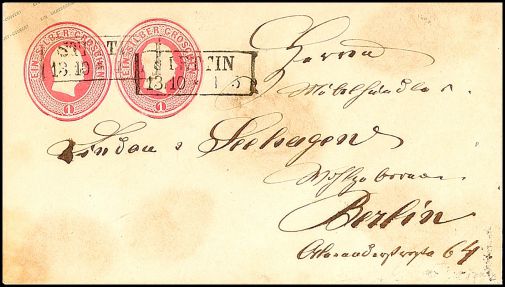 EIN SILBER GROSCHEN
1
EIN SILBER GROSCHEN
1
STETTIN
13.10
Herrn
Möbelhändler
Lindau & Seehagen
Wohlgeboren
Berlin
Alexanderstrasse 64